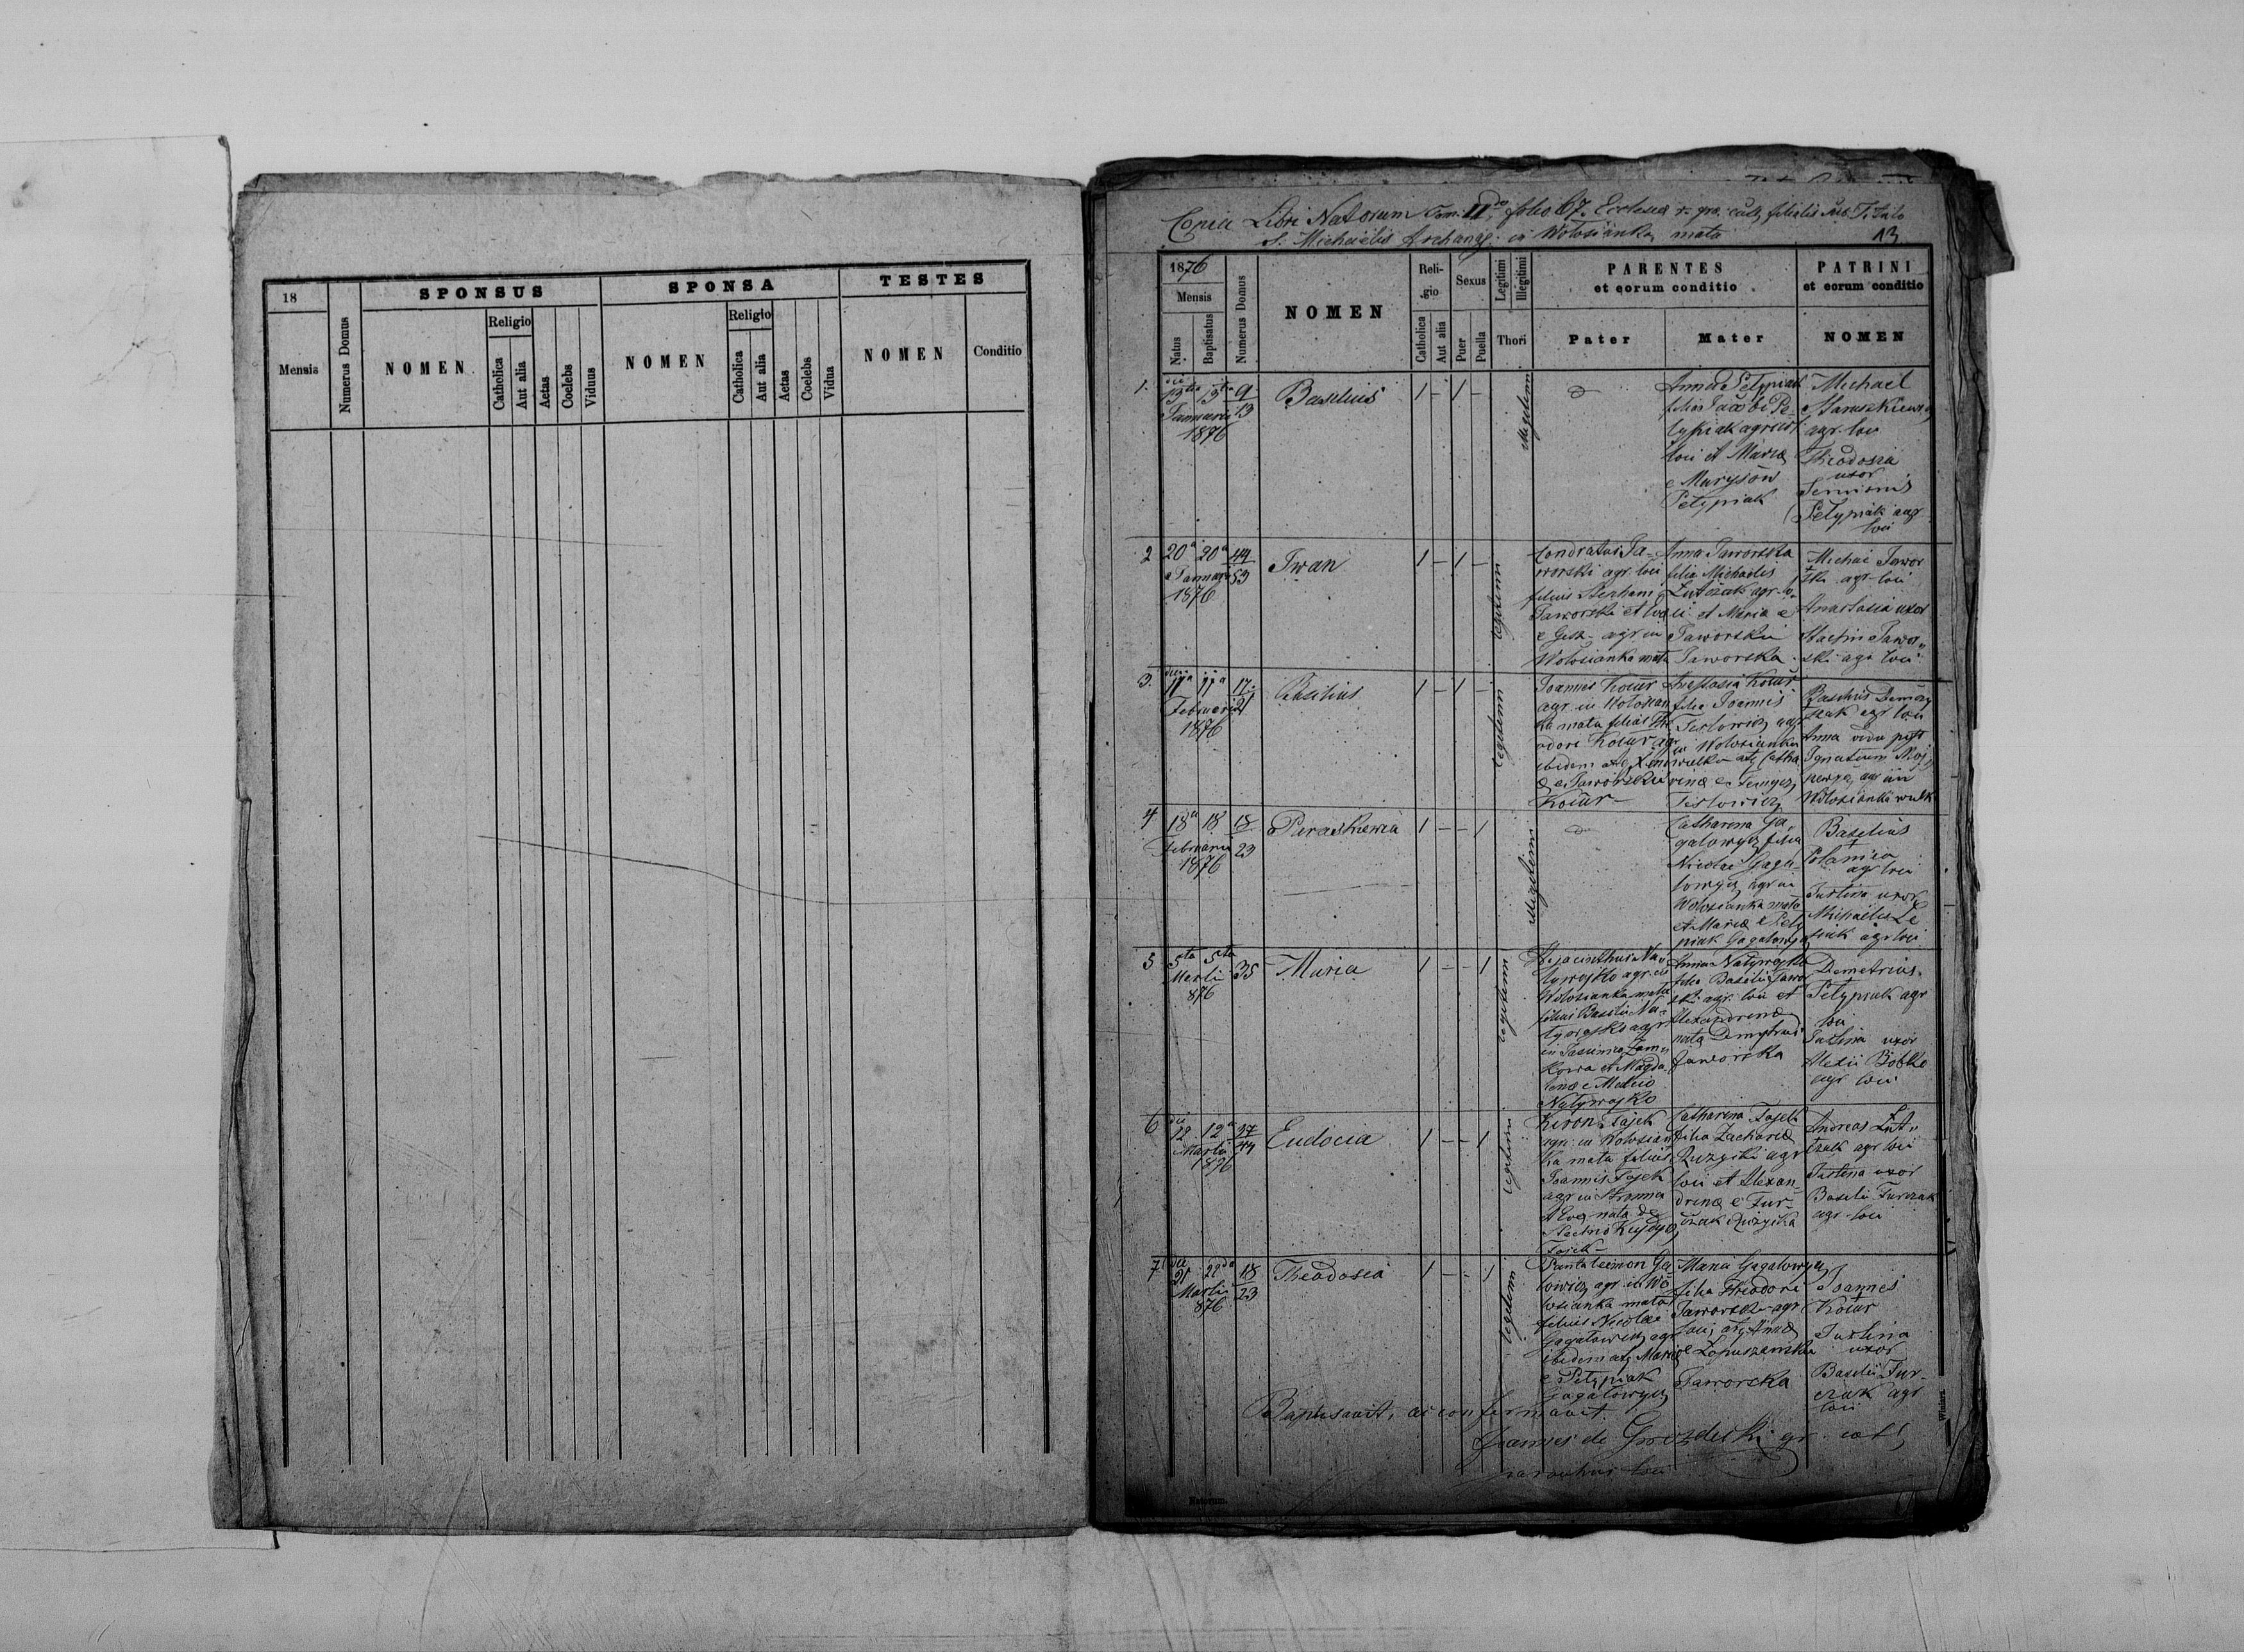 18
SPONSUS
SPONSA
TESTES
Mensis
Numerus Domus
NOMEN
Religio
Catholica
Aut alia
Aetas
Coelebs
Viduus
NOMEN
Religio
Catholica
Aut alia
Aetas
Coelebs
Vidua
NOMEN
Conditio
Copia Libri Natorum Tom. II do folio 67. Ecclesia r. gr. cath. filialis sub Titulo
S. Michaelis Archang. in Wołosianka mała
13
1876
Mensis
Natus
Baptisatus
Numerus Domus
NOMEN
Reli-
gio
Catholica
Aut alia
Sexus
Puer
Puella
Legitimi
Illegitimi
Thori
PARENTES
et eorum conditio
Pater
Mater
PATRINI
et eorum conditio
NOMEN
1.
13 13 9
Januarii 13
1876
Basilius
1 - 1 -
illegitimi
Anna Petypiak
filia Jacobi Pe-
typiak agr
loci et Maria
e Maryson
Petypiak
Michael
Staruszkiewicz
agr. loci
Theodosia
uxor
Simionis
Petypiak agr
loci
2
20a 20a 44
Januar 53
1876
Iwan
1 - 1 -
legitimi
Condratus Ja-
worski agr. loci
filius Stephani
Jaworski et Eva
e Gesz- agr in
Wołosianka mała
Anna Jaworska
filia Michaelis
Łutczak agr. lo-
ci et Maria e
Jaworskie
Jaworska
Michai Jawor
ski agr-loci
Anastasia uxor
Stachni Jawor-
ski agr loci
3.
11a 11a 17
Februarii 21
1876
Basilius
1 - 1 -
legitimi
Joannes Kocur
agr. in Wołosian
ka mała filius The
odori Kocur agr
ibidem atq Xenia
e Jaworskie
Kocur
Anastasia Kocur
filia Joannis
Tislowicz agr
in Wołosianka
wielka atq Catha
rina e
Tislowicz
Basilius Demay
czak agr loci
Anna vidu post
Ignatium
agr in
Wołosianka wielk
4
18a 18 18
Februarii 23
1876
Paraskewia
1 - - 1
illegitimi
Catharina Ga-
galowycz filia
Nicolai Gaga
lowycz agr in
Wołosianka mała
et Maria e Pety
piak Gagalowycz
Basilius
Polanica
agr loci
Justina uxor
Michaelis Le
siuk agr loci
5
5ta 5ta
Martii 35
876
Maria
1 - - 1
legitimi
Hyacinthus Na-
tywojko agr. in
Wołosianka mała
filius Basilii Na-
tywojko agr
in Jasionka Zam-
kowa et Magda-
lena e
Natywojko
Anna Natywojko
filia Basilii Jawor
ski agr. loci et
Alexandrina
nata Dmytrui
Jaworska
Demetrius
Petypiak agr
loci
Justina uxor
Alexii Bobko
agr loci
6
12 12a 37
Martii 44
1876
Eudocia
1 - - 1
legitimi
Kiron Fajek
agr in Wołosian
ka mała filius
Joannis Fajek
agr in Stronna
et Eva nata de
Fajek
Catharina Fajek
filia Zachariæ
Ruzycki agr
loci et Alexan-
drina e Fur-
czak Ruzycka
Andreas Łut-
czak agr loci
Justina uxor
Basilii Furczak
agr-loci
7
21 22da 18
Martii 23
876
Theodosia
1 - - 1
legitimi
Pantaleimon Ga
lowicz agr in Wo
łosianka mała
filius Nicolai
Gagalowicz agr
ibidem atq Maria
e Petypiak
Gagalowycz
Maria Gagalowycz
filia Theodori
Jaworski agr
loci, atq Anna
e Łopuszanska
Jaworska
Joannes
Kocur
Justina
uxor
Basilii Fur-
czak agr
loci
Baptisavit, ac confirmavit.
Joannes de Grozdecki gr. cat.
parochus loci
Natorum.
Winiarz.